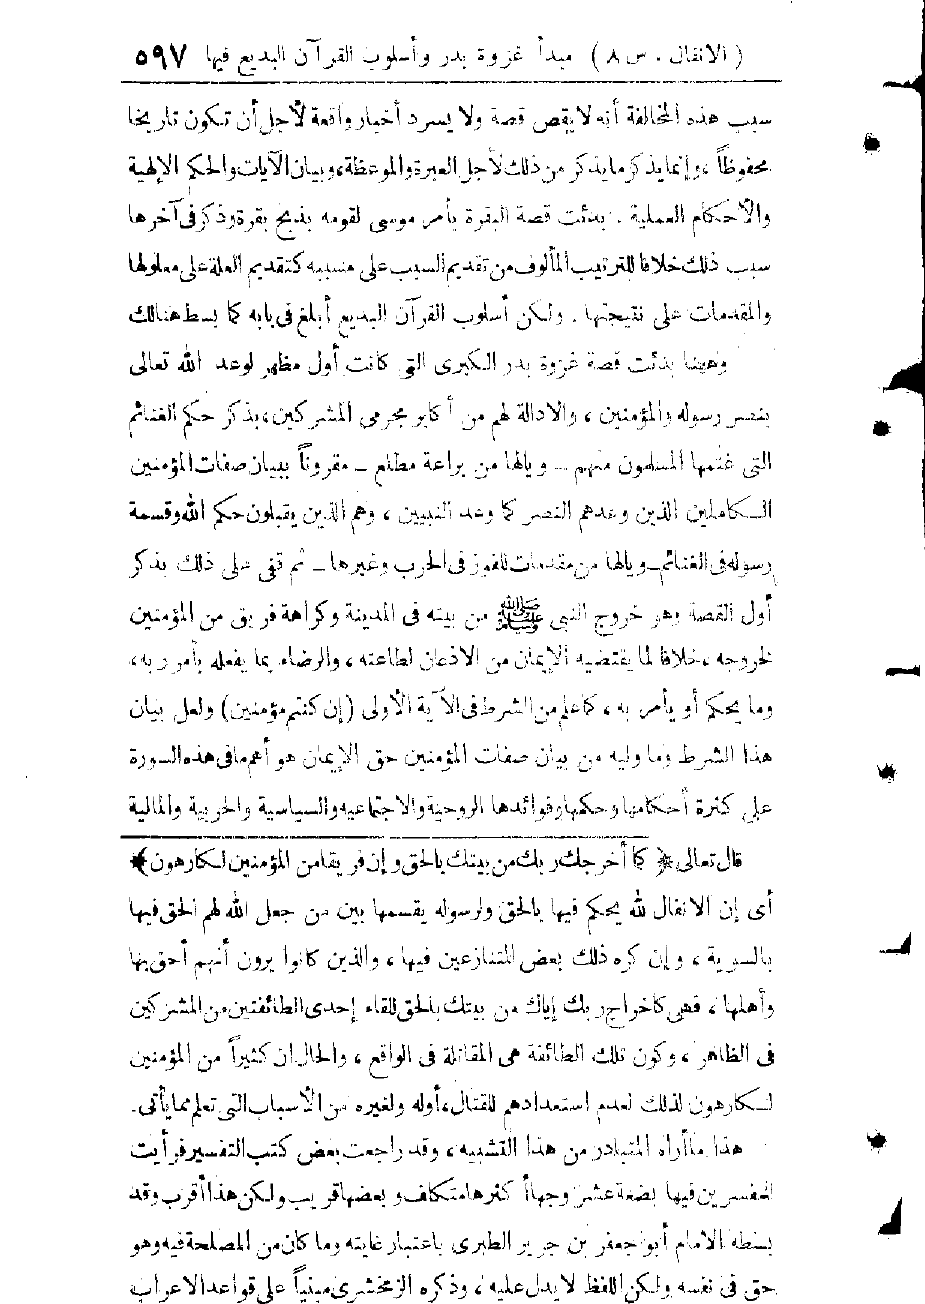 ( الانفال . س ٨ ) مبدأ غزوة بدر وأسلوب القرآن البديع فيها ٥٩٧
سبب هذه المخالفة أنه لا يقص قصة ولا يسرد أخبار واقعة لأجل أن تكون تاريخا
محفوظاً ، وإنما يذكر ما يذكر من ذلك لأجل العبرة والموعظة ، وبيان الآيات والحكم الإلهية
والأحكام العملية . بدئت قصة البقرة بأمر موسى لقومه بذبح بقرة وذكر في آخرها
سبب ذلك خلافا للترتيب المألوف من تقديم السبب على مسببه كتقديم العلة على معلولها
والمقدمات على نتيجتها . ولكن أسلوب القرآن البديع أبلغ في بابه كما بسط هنالك
وههنا بدئت قصة غزوة بدر الكبرى التي كانت أول مظهر لوعد الله تعالى
بنصر رسوله والمؤمنين ، والادالة لهم من أكابر مجرمي المشركين ، بذكر حكم الغنائم
التي غنمها المسلمون منهم ــ ويالها من براعة مطلع ــ مقروناً ببيان صفات المؤمنين
الكاملين الذين وعدهم النصر كما وعد النبيين ، وهم الذين يقبلون حكم الله وقسمة
رسوله في الغنائم ــ ويالها من مقدمات للفوز في الحرب وغيرها ــ ثم قفى على ذلك بذكر
أول القصة وهو خروج النبي ﷺ من بيته في المدينة وكراهة فريق من المؤمنين
لخروجه ، خلافا لما يقتضيه الإيمان من الاذعان لطاعته ، والرضاء بما يفعله بأمر ربه ،
وما يحكم أو يأمر به ، كما علم من الشرط في الآية الأولى (إن كنتم مؤمنين) ولعل بيان
هذا الشرط وما وليه من بيان صفات المؤمنين حق الإيمان هو أهم ما في هذه السورة
على كثرة أحكامها وحكمها وفوائدها الروحية والاجتماعيه والسياسية والحربية والمالية
قال تعالى ﴿ كما أخرجك ربك من بيتك بالحق وإن فريقا من المؤمنين لكارهون ﴾
أى إن الانفال لله يحكم فيها بالحق ولرسوله يقسمها بين من جعل الله لهم الحق فيها
بالسوية ، وإن كره ذلك بعض المتنازعين فيها ، والذين كانوا يرون أنهم أحق بها
وأهلها ، فهى كاخراج ربك إياك من بيتك بالحق للقاء إحدى الطائفتين من المشركين
فى الظاهر ، وكون تلك الطائفة هى المقاتلة فى الواقع ، والحال ان كثيراً من المؤمنين
لكارهون لذلك لعدم استعدادهم للقتال ، أوله ولغيره من الأسباب التى تعلم مما يأتى .
هذا ما أراه المتبادر من هذا التشبيه ، وقد راجعت بعض كتب التفسير فرأيت
للمفسرين فيها بضعة عشر وجهاً أكثرها متكلف وبعضها قريب ولكن هذا أقرب وقد
بسطه الامام أبو جعفر بن جرير الطبرى باعتبار غايته وما كان من المصلحة فيه وهو
حق فى نفسه ولكن اللفظ لا يدل عليه ، وذكره الزمخشرى مبنياً على قواعد الاعراب